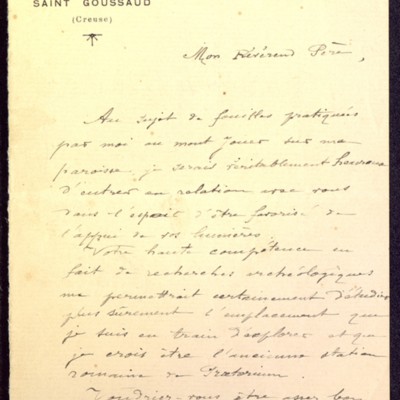 SAINT GOUSSAUD
(Creuse)
Mon Révérend Père,
Au sujet de fouilles pratiquées
par moi au mont Jouer sur ma
paroisse, je serais véritablement heureux
d'entrer en relation avec vous
dans l'espoir d'être favorisé de
l'appui de vos lumières.
Votre haute compétence en
fait de recherches archéologiques
me permettrait certainement d'étudier
plus sûrement l'emplacement que
je suis en train d'explorer et que
je crois être l'ancienne station
romaine de Prætorium.
Voudriez-vous être assez bon